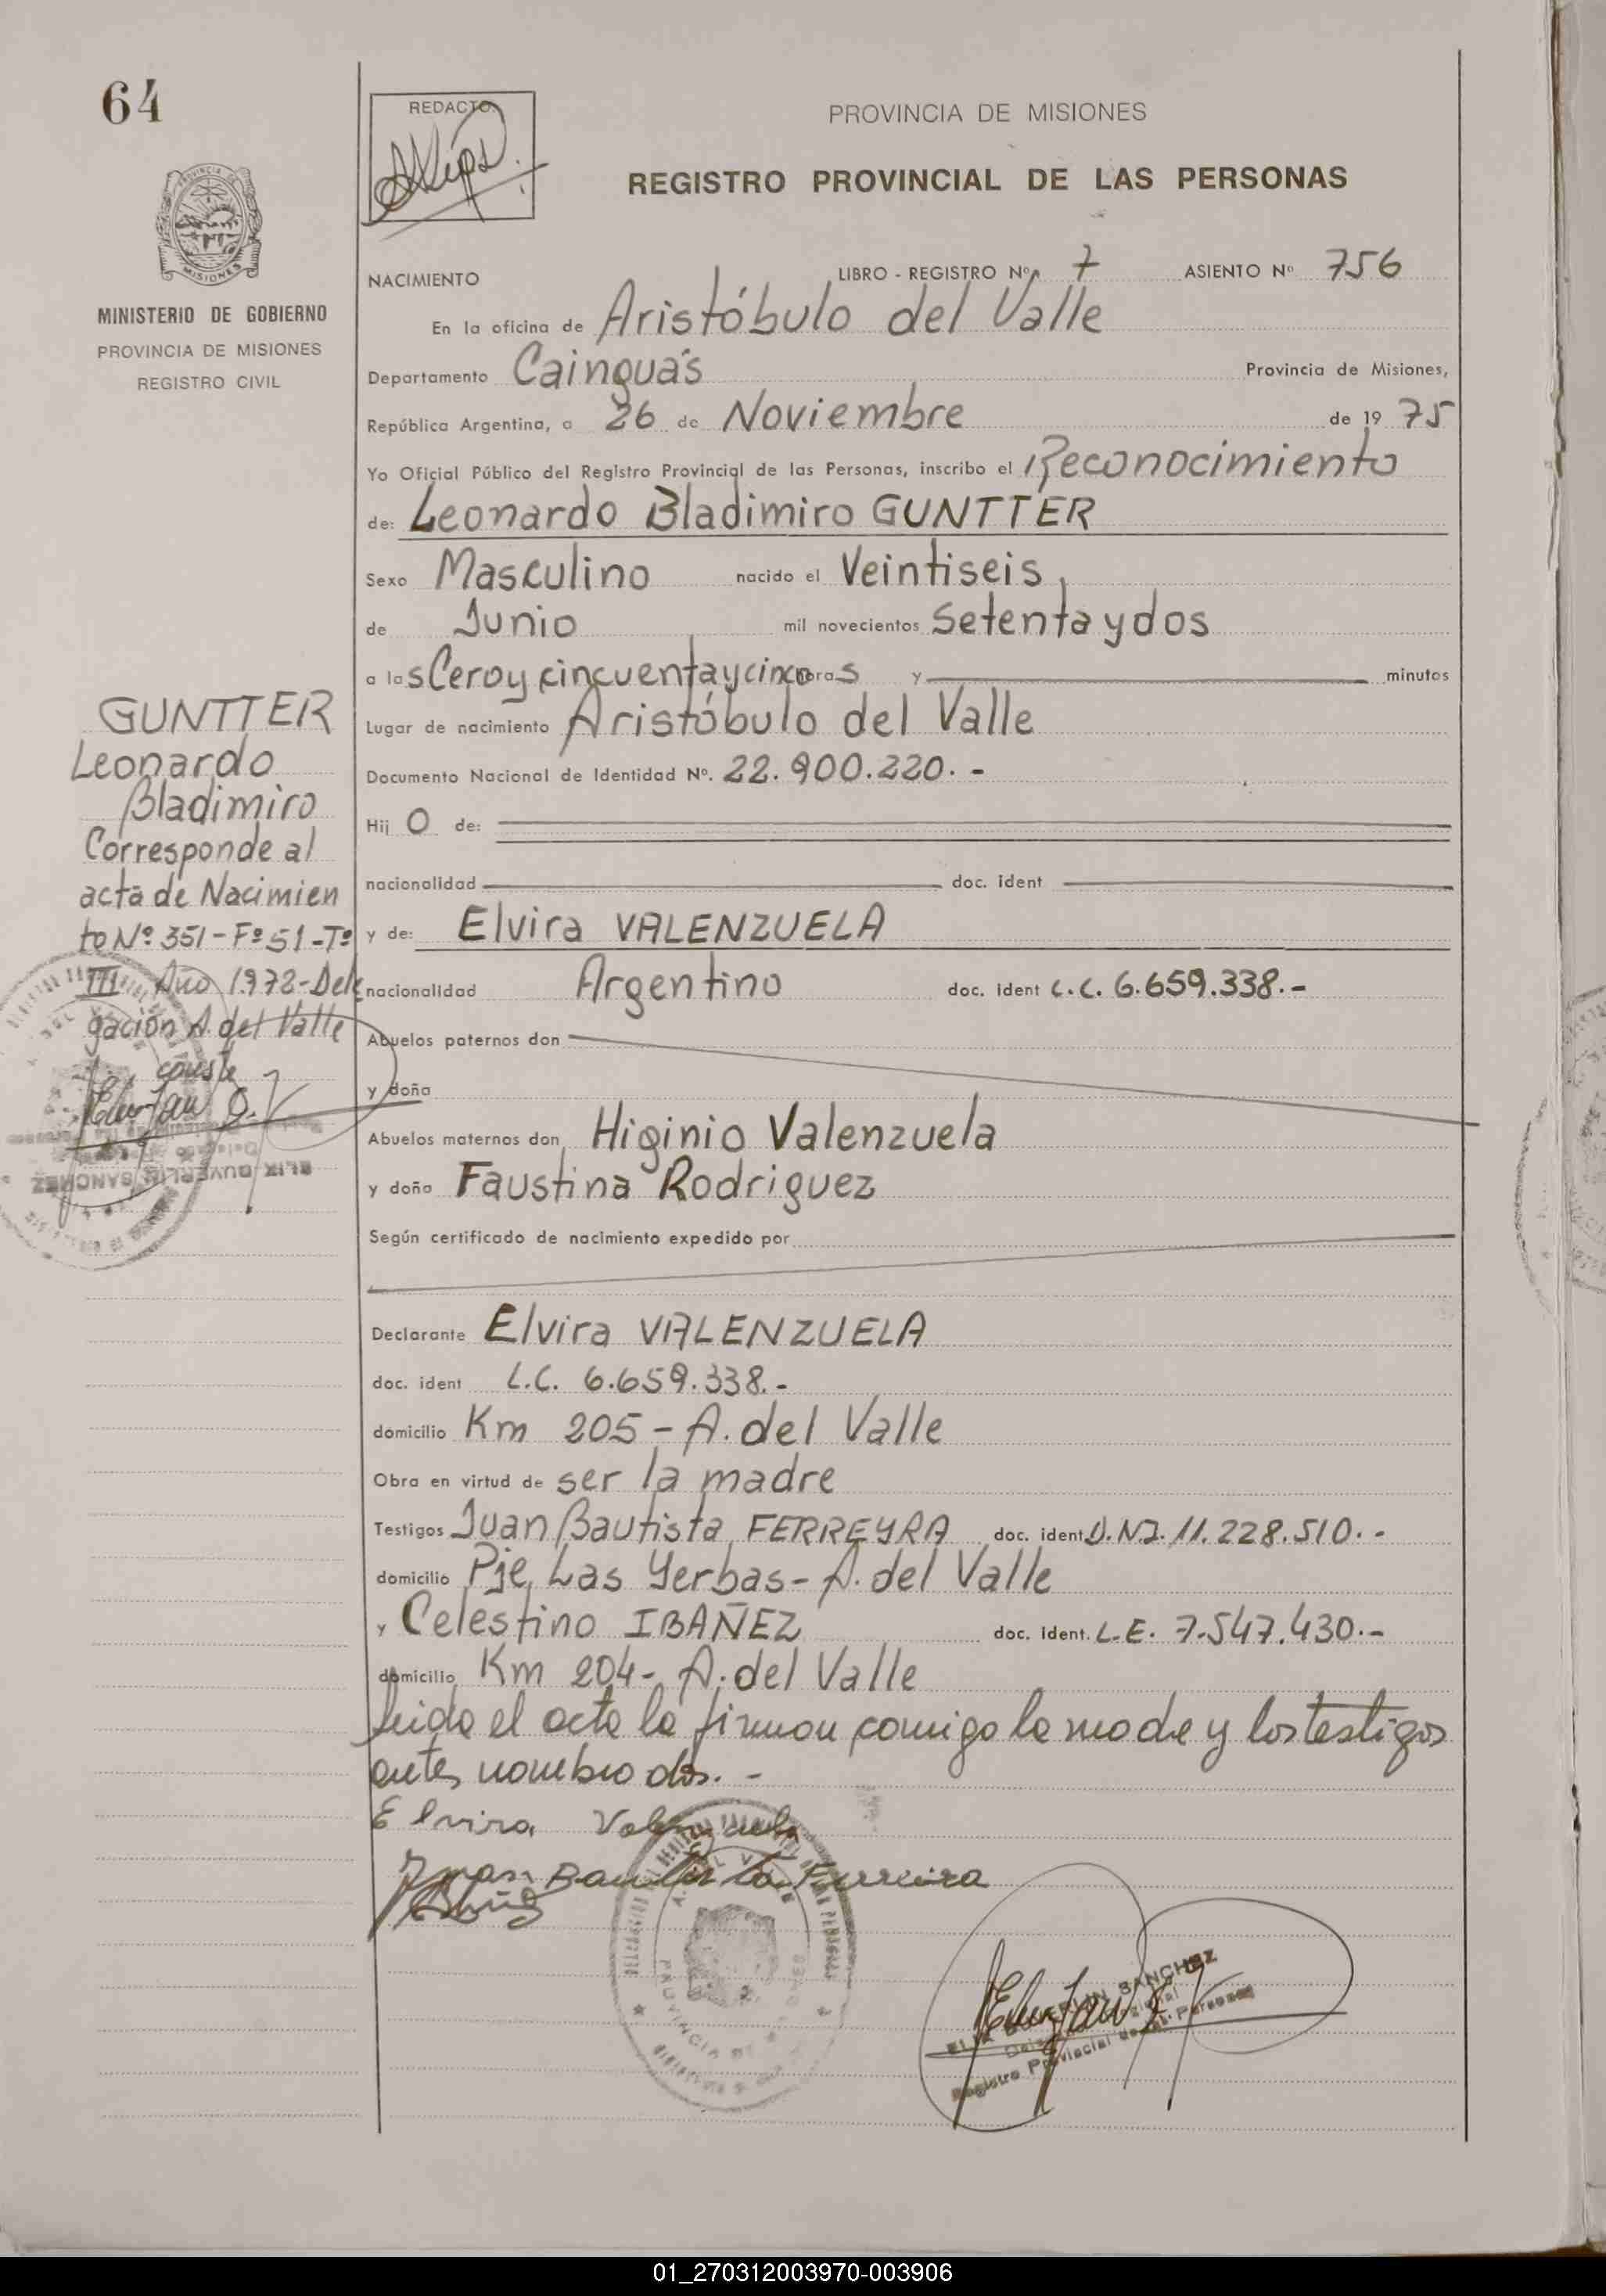 64
REDACTO:
PROVINCIA DE MISIONES
REGISTRO PROVINCIAL DE LAS PERSONAS
MINISTERIO DE GOBIERNO
PROVINCIA DE MISIONES
REGISTRO CIVIL
NACIMIENTO LIBRO - REGISTRO Nº 7 ASIENTO Nº 756
En la oficina de Aristóbulo del Valle
Departamento Cainguás Provincia de Misiones,
República Argentina, a 26 de Noviembre de 19 75
Yo Oficial Público del Registro Provincial de las Personas, inscribo el Reconocimiento
de: Leonardo Bladimiro GUNTTER
Sexo Masculino nacido el Veintiseis
de Junio mil novecientos Setenta y dos
a las Cero y cincuenta y cinco horas y minutos
Lugar de nacimiento Aristóbulo del Valle
Documento Nacional de Identidad Nº. 22.900.220.-
Hij O de:
nacionalidad doc. ident
y de: Elvira VALENZUELA
nacionalidad Argentino doc. ident L.C. 6.659.338.-
Abuelos paternos don
y doña
Abuelos maternos don Higinio Valenzuela
y doña Faustina Rodriguez
Según certificado de nacimiento expedido por
Declarante Elvira VALENZUELA
doc. ident L.C. 6.659.338.-
domicilio Km 205 - A. del Valle
Obra en virtud de ser la madre
Testigos Juan Bautista FERREYRA doc. ident D.N.I. 11.228.510.-
domicilio Pje Las Yerbas - A. del Valle
y Celestino IBAÑEZ doc. ident. L.E. 7.547.430.-
domicilio Km 204 - A. del Valle
Leida el acta la firman comigo la madre y los testigos
antes nombrados.-
Elvira Valenzuela
Juan Bautista Ferreira
GUNTTER
Leonardo
Bladimiro
Corresponde al
acta de Nacimien
to Nº 351 - Fº 51 - Tº
III Año 1972 - Dele
gación A. del Valle
conste
ELIX DUVERLIN SANCHEZ
ELIX DUVERLIN SANCHEZ
Registro Provincial de las Personas
01_270312003970-003906